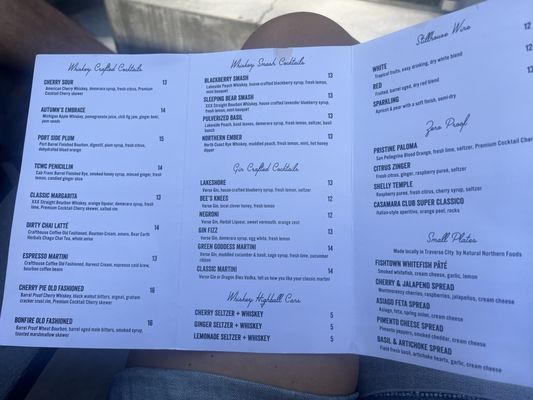 Whiskey Crafted Cocktails
CHERRY SOUR 13
American Cherry Whiskey, demerara syrup, fresh citrus, Premium
Cocktail Cherry skewer
AUTUMN'S EMBRACE 14
Michigan Apple Whiskey, pomegranate juice, chili fig jam, ginger beer,
pom seeds
PORT SIDE PLUM 15
Port Barrel Finished Bourbon, digestif, plum syrup, fresh citrus,
dehydrated blood orange
TCWC PENICILLIN 14
Cab Franc Barrel Finished Rye, smoked honey syrup, minced ginger, fresh
lemon, candied ginger slice
CLASSIC MARGARITA 13
XXX Straight Bourbon Whiskey, orange liqueur, demerara syrup, fresh
lime, Premium Cocktail Cherry skewer, salted rim
DIRTY CHAI LATTÉ 14
Crafthouse Coffee Old Fashioned, Bourbon Cream, amaro, Bear Earth
Herbals Chaga Chai Tea, whole anise
ESPRESSO MARTINI 13
Crafthouse Coffee Old Fashioned, Harvest Cream, espresso cold brew,
bourbon coffee beans
CHERRY PIE OLD FASHIONED 16
Barrel Proof Cherry Whiskey, black walnut bitters, orgeat, graham
cracker sugar rim, Premium Cocktail Cherry
BONFIRE OLD FASHIONED 16
Barrel Proof Wheat Bourbon, barrel aged mole bitters, smoked syrup,
toasted marshmallow skewer
Whiskey Smash Cocktails
BLACKBERRY SMASH 13
Lakeside Peach Whiskey, house crafted blackberry syrup, fresh lemon,
mint bouquet
SLEEPING BEAR SMASH 13
XXX Straight Bourbon Whiskey, house crafted lavender blueberry syrup,
fresh lemon, mint bouquet
PULVERIZED BASIL 13
Lakeside Peach, basil leaves, demerara syrup, fresh lemon, seltzer, basil
bunch
NORTHERN EMBER 13
North Coast Rye Whiskey, muddled peach, fresh lemon, mint, hot honey
dipper
Gin Crafted Cocktails
LAKESHORE 13
Verse Gin, house-crafted blueberry syrup, fresh lemon, seltzer
BEE'S KNEES 12
Verse Gin, local clover honey, fresh lemon
NEGRONI 12
Verse Gin, Herbal Liqueur, sweet vermouth, orange zest
GIN FIZZ 13
Verse Gin, demerara syrup, egg white, fresh lemon
GREEN GODDESS MARTINI 14
Verse Gin, muddled cucumber & basil, sage syrup, fresh lime, cucumber
ribbon
CLASSIC MARTINI 14
Verse Gin or Dragon Bleu Vodka, tell us how you like your classic martini
Whiskey Highball Cans
CHERRY SELTZER + WHISKEY 5
GINGER SELTZER + WHISKEY 5
LEMONADE SELTZER + WHISKEY 5
Stillhouse Wine
WHITE 12
Tropical fruits, easy drinking, dry white blend
RED 12
Fruited, barrel aged, dry red blend
SPARKLING 12
Apricot & pear with a soft finish, semi-dry
Zero Proof
PRISTINE PALOMA
San Pellegrino Blood Orange, fresh lime, seltzer, Premium Cocktail Cherry
CITRUS ZINGER
Fresh citrus, ginger, raspberry puree, seltzer
SHELLY TEMPLE
Raspberry pureé, fresh citrus, cherry syrup, seltzer
CASAMARA CLUB SUPER CLASSICO
Italian-style aperitivo, orange peel, rocks
Small Plates
Made locally in Traverse City by Natural Northern Foods
FISHTOWN WHITEFISH PÂTÉ
Smoked whitefish, cream cheese, garlic, lemon
CHERRY & JALAPENO SPREAD
Montmorency cherries, raspberries, jalapeños, cream cheese
ASIAGO FETA SPREAD
Asiago, feta, spring onion, cream cheese
PIMENTO CHEESE SPREAD
Pimento peppers, smoked cheddar, cream cheese
BASIL & ARTICHOKE SPREAD
Field fresh basil, artichoke hearts, garlic, cream cheese